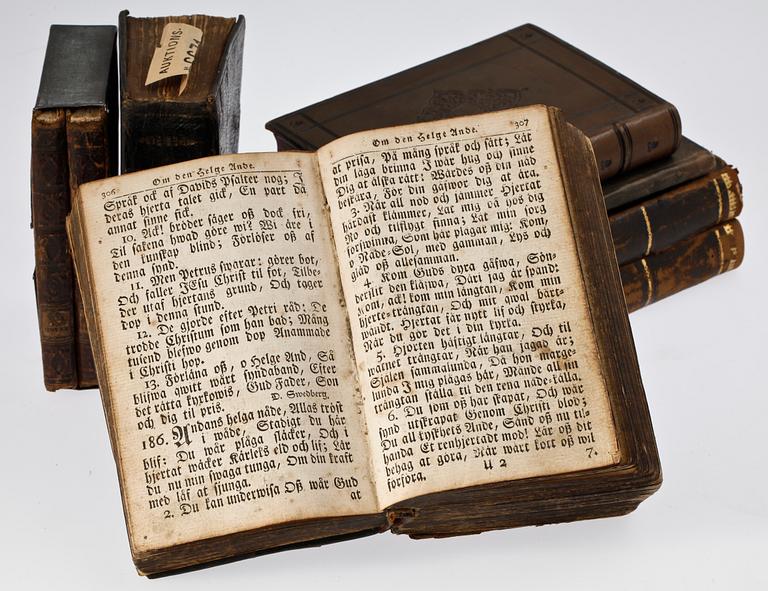 AUKTIONS-
306 Om den Helge Ande.
Språk ock af Davids Psalter nog; I
deras hjerta talet gick, En part då
annat sinne fick.
10. Ack! bröder säger oß dock fri,
Til sakena hwad göre wi? Wi äre i
den kunskap blind; Förlöser oß af
denna synd.
11. Men Petrus swarar: görer bot,
Och faller JEsu Christ til fot, Tilbe-
der utaf hjertans grund, Och tager
dop i denna stund.
12. De gjorde efter Petri råd: De
trodde Christum som han bad; Mång
tusend blefwo genom dop Anammade
i Christi hop.
13. Förlåna oß, o Helge And, Så
blifwa qwitt wårt syndaband, Efter
det rätta kyrkowis, Gud Fader, Son
och dig til pris. D. Swedberg.
186. Andans helga nåde, Allas tröst
i wåde, Stadigt du här
blif: Du wår plåga släcker, Och i
hjertat wäcker Kärleks eld och lif; Lär
du nu min swaga tunga, Om din kraft
med låf at sjunga.
2. Du kan underwisa Oß wår Gud
at
Om den Helge Ande. 307
at prisa, På mång språk och sätt; Låt
din låga brinna I wår hug och sinne
Dig at älska rätt: Wärdes oß din nåd
beskära, För din gåfwor dig at ära.
3. När all nöd och jämmer Hjertat
hårdast klämmer, Låt
Ro och tilflygt finna; Lät min sorg
förswinna, Som här plågar mig: Kom,
o Nåde-Sol, med gamman, Lys och
gläd oß allesamman.
4. Kom Guds dyra gåfwa, Sön-
derslit den kläfwa, Däri jag är spänd:
Kom, ack! kom min längtan, Kom min
hjerte-trängtan, Och min qwal bort-
wändt. Hjertat får nytt lif och styrka,
När du gör det i din kyrka.
5. Hjorten häftigt längtar, Och til
watnet trängtar, När han jagad är;
Själen sammalunda, Då hon marge-
lunda I mig plågas här, Månde all sin
trängtan ställa til den rena nåde-källa.
6. Du som oß har skapat, Och wår
synd utskrapat Genom Christi blod;
Du all kyskhets Ande, Sänd oß nu til-
handa Et renhjertadt mod! Lär oß dit
behag at göra, När wårt kött oß wil
förföra. U 2 7.